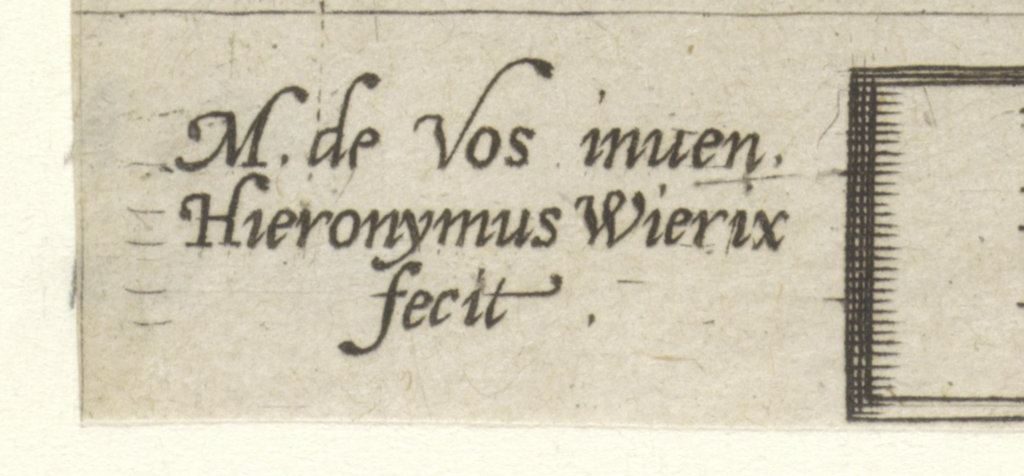 M. de Vos inuen.
Hieronymus Wierix
fecit.